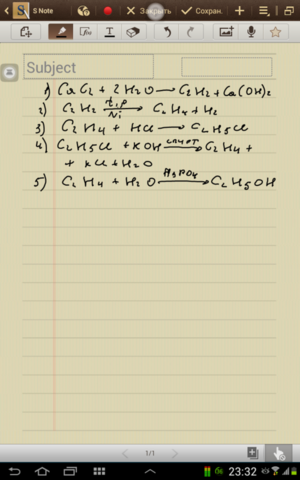 S Note
Закрыть
Сохран.
Subject
1) CaC2 + 2H2O → C2H2 + Ca(OH)2
2) C2H2 t,p → Ni C2H4 + H2
3) C2H4 + HCl → C2H5Cl
4) C2H5Cl + KOH спирт → C2H4 +
+ KCl + H2O
5) C2H4 + H2O H3PO4 → C2H5OH
1/1
23:32